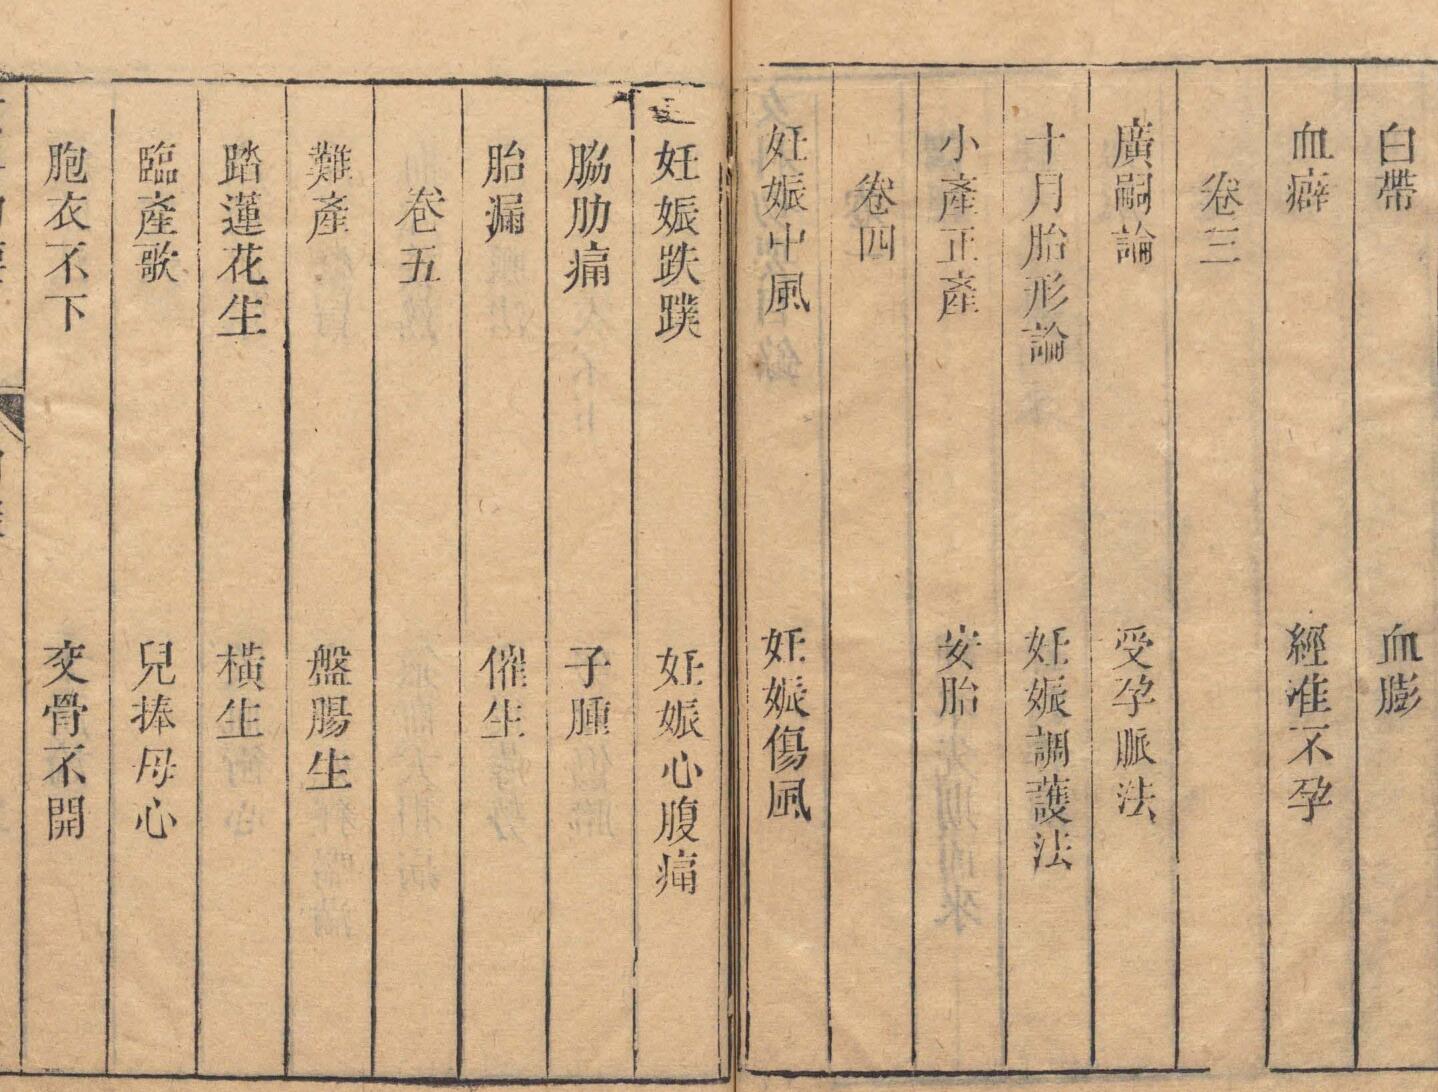 白帶 血膨
血癖 經准不孕
卷三
廣嗣論 受孕脈法
十月胎形論 妊娠調護法
小產正產 安胎
卷四
妊娠中風 妊娠傷風
妊娠跌蹼 妊娠心腹痛
脇肋痛 子腫
胎漏 催生
卷五
難產 盤腸生
踏蓮花生 橫生
臨產歌 兒捧母心
胞衣不下 交骨不開